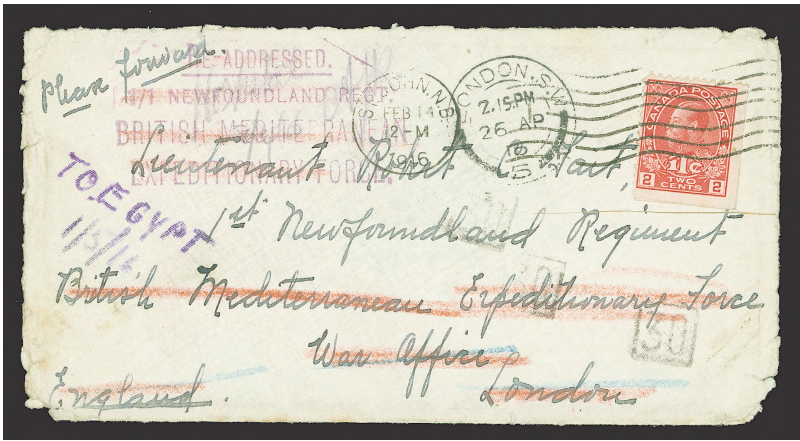 Please forward.
RE-ADDRESSED.
1/1 NEWFOUNDLAND REGT.
BRITISH MEDITERRANEAN
EXPEDITIONARY FORCE.
ST. JOHN. N.B.
FEB 14
12-M
1916
LONDON. S.W.
2.15 PM
26 AP
16
CANADA POSTAGE
1Tc
2 TWO CENTS 2
Lieutenant Robert
TO EGYPT
1/5/16
1st Newfoundland Regiment
British Mediterranean Expeditionary Force
30
War Office
London
England.